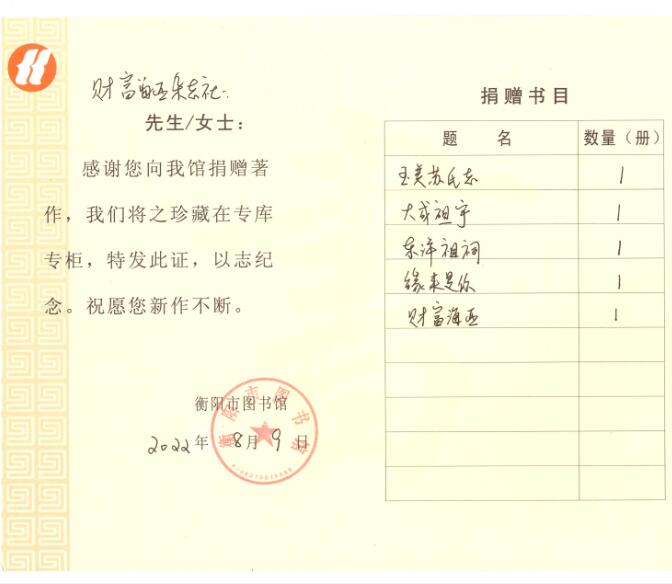 财富海亚杂志社:
先生/女士：
感谢您向我馆捐赠著
作，我们将之珍藏在专库
专柜，特发此证，以志纪
念。祝愿您新作不断。
衡阳市图书馆
2022年8月9日
衡阳市图书馆
捐赠书目
题 名 数量（册）
玉美苏氏志 1
大成祖宇 1
东洋祖祠 1
缘来是你 1
财富海亚 1